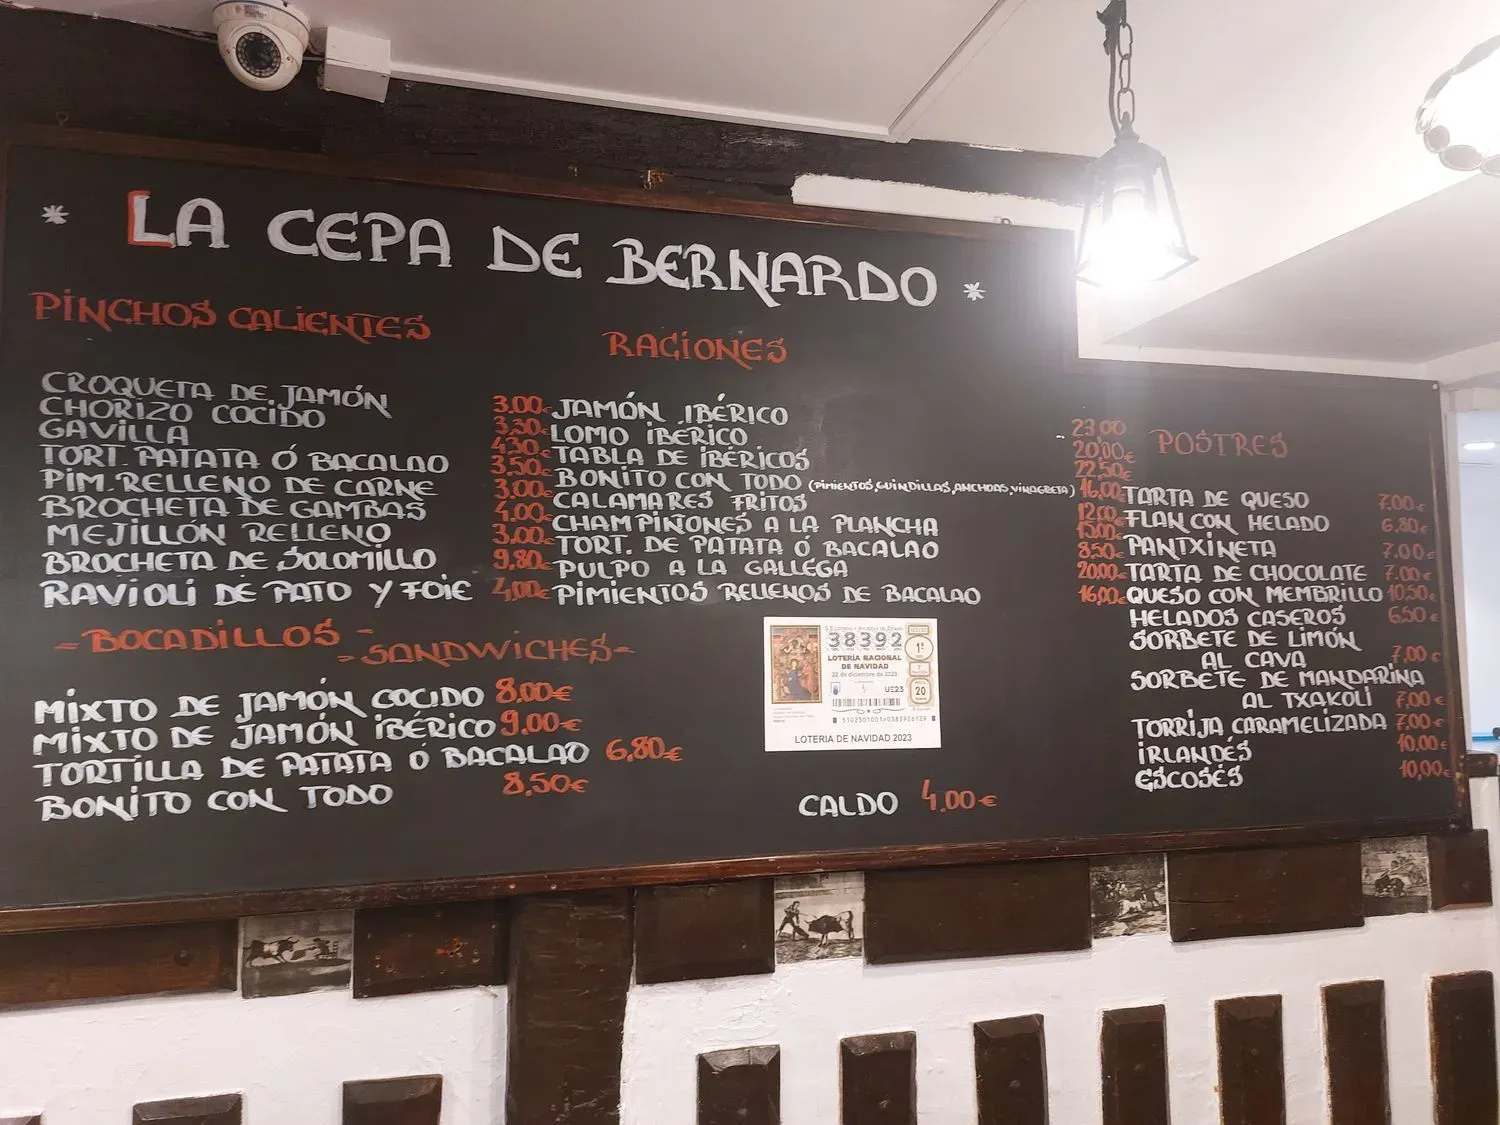 * LA CEPA DE BERNARDO *
PINCHOS CALIENTES
CROQUETA DE JAMÓN 3.00€
CHORIZO COCIDO 3,30€
GAVILLA 4,30€
TORT. PATATA Ó BACALAO 3,50€
PIM. RELLENO DE CARNE 3,00€
BROCHETA DE GAMBAS 4.00€
MEJILLÓN RELLENO 3,00€
BROCHETA DE SOLOMILLO 9,80€
RAVIOLI DE PATO Y FOIE 4,00€
- BOCADILLOS -
- SANDWICHES -
MIXTO DE JAMÓN COCIDO 8,00€
MIXTO DE JAMÓN IBÉRICO 9.00€
TORTILLA DE PATATA Ó BACALAO 6,80€
BONITO CON TODO 8,50€
RACIONES
JAMÓN IBÉRICO 23,00
LOMO IBÉRICO 20,00€
TABLA DE IBÉRICOS 22,50€
BONITO CON TODO (PIMIENTOS,GUINDILLAS,ANCHOAS,VINAGRETA) 16,00€
CALAMARES FRITOS 12,00€
CHAMPIÑONES A LA PLANCHA 15,00€
TORT. DE PATATA Ó BACALAO 8,50€
PULPO A LA GALLEGA 20,00€
PIMIENTOS RELLENOS DE BACALAO 16,00€
38392
LOTERÍA NACIONAL
DE NAVIDAD
22 de diciembre de 2023
1ª
UE23
20
LOTERIA DE NAVIDAD 2023
CALDO 4.00€
POSTRES
TARTA DE QUESO 7,00€
FLAN CON HELADO 6,80€
PANTXINETA 7.00€
TARTA DE CHOCOLATE 7.00€
QUESO CON MEMBRILLO 10,50€
HELADOS CASEROS 6,50€
SORBETE DE LIMÓN
AL CAVA 7,00€
SORBETE DE MANDARINA
AL TXAKOLI 7,00€
TORRIJA CARAMELIZADA 7,00€
IRLANDÉS 10,00€
ESCOSÉS 10,00€